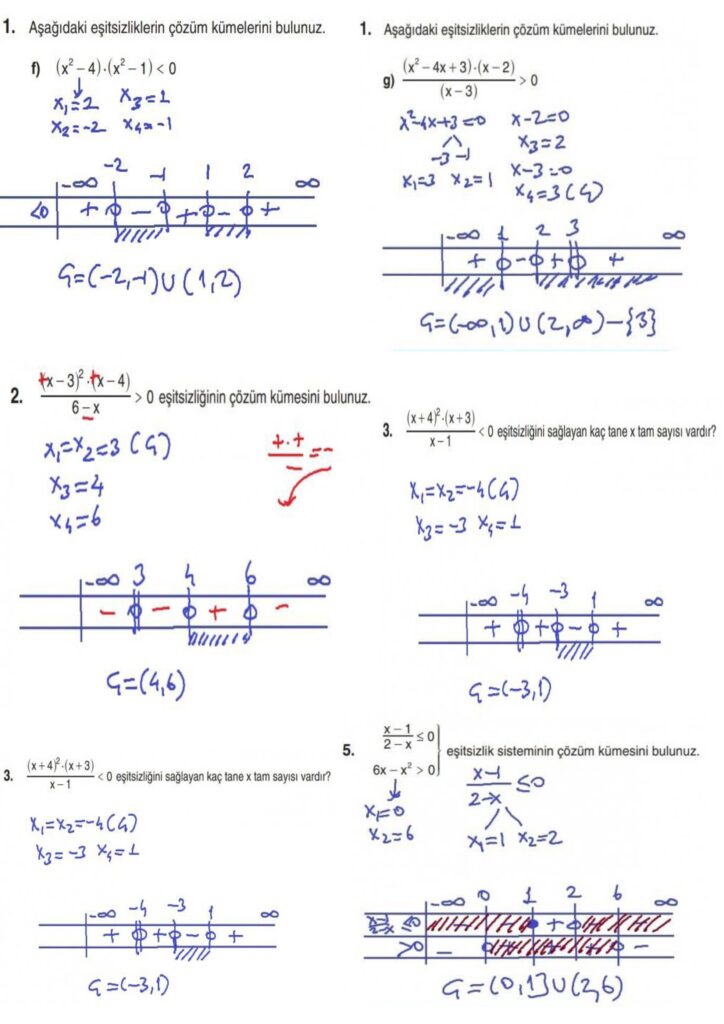 1. Aşağıdaki eşitsizliklerin çözüm kümelerini bulunuz.
f) (x² – 4)·(x² – 1) < 0
x₁=2 x₃=1
x₂=-2 x₄=-1
-2 -1 1 2
-∞ ∞
<0 + - + - +
Ç=(-2,-1)∪(1,2)
1. Aşağıdaki eşitsizliklerin çözüm kümelerini bulunuz.
g) (x² – 4x + 3)·(x – 2) / (x – 3) > 0
x²-4x+3=0 x-2=0
-3 -1 x₃=2
x₁=3 x₂=1 x-3=0
x₄=3 (Ç)
-∞ 1 2 3 ∞
+ - + +
Ç=(-∞,1)∪(2,∞)-{3}
2. (x – 3)²·(x – 4) / 6 – x > 0 eşitsizliğinin çözüm kümesini bulunuz.
x₁=x₂=3 (Ç)
+.+ / - = -
x₃=4
x₄=6
-∞ 3 4 6 ∞
- - + -
Ç=(4,6)
3. (x+4)²·(x+3) / x – 1 < 0 eşitsizliğini sağlayan kaç tane x tam sayısı vardır?
x₁=x₂=-4(Ç)
x₃=-3 x₄=1
-∞ -4 -3 1 ∞
+ + - +
Ç=(-3,1)
3. (x+4)²·(x+3) / x – 1 < 0 eşitsizliğini sağlayan kaç tane x tam sayısı vardır?
x₁=x₂=-4(Ç)
x₃=-3 x₄=1
-∞ -4 -3 1 ∞
+ + - +
Ç=(-3,1)
5. x – 1 / 2 – x ≤ 0
6x – x² > 0 eşitsizlik sisteminin çözüm kümesini bulunuz.
x₁=0
x₂=6
x-1 / 2-x ≤0
x₁=1 x₂=2
-∞ 0 1 2 6 ∞
x-1 / 2-x ≤0 +
>0 - -
Ç=(0,1]∪(2,6)